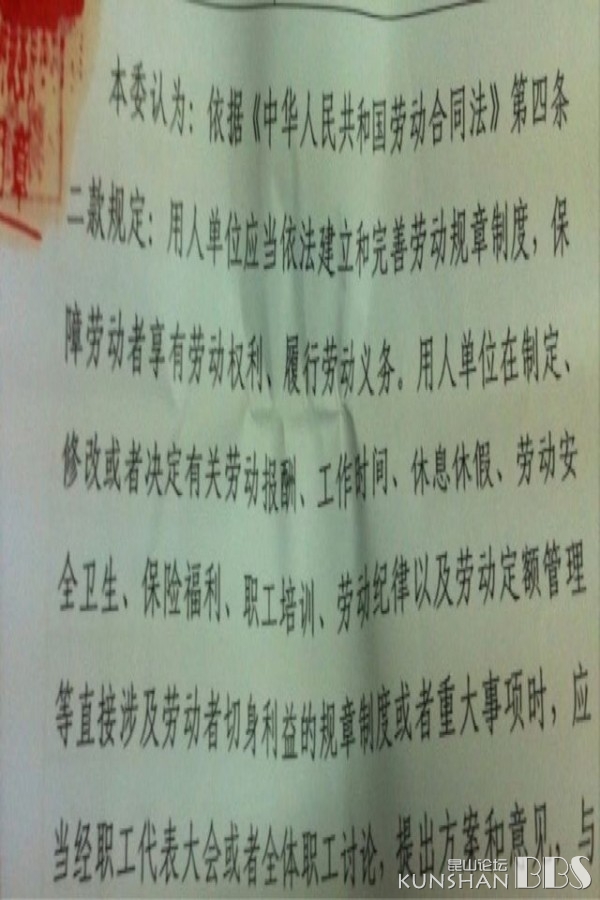 本委认为：依据《中华人民共和国劳动合同法》第四条
二款规定：用人单位应当依法建立和完善劳动规章制度，保
障劳动者享有劳动权利、履行劳动义务。用人单位在制定、
修改或者决定有关劳动报酬、工作时间、休息休假、劳动安
全卫生、保险福利、职工培训、劳动纪律以及劳动定额管理
等直接涉及劳动者切身利益的规章制度或者重大事项时，应
当经职工代表大会或者全体职工讨论，提出方案和意见，与
昆山论坛
KUNSHAN BBS
章